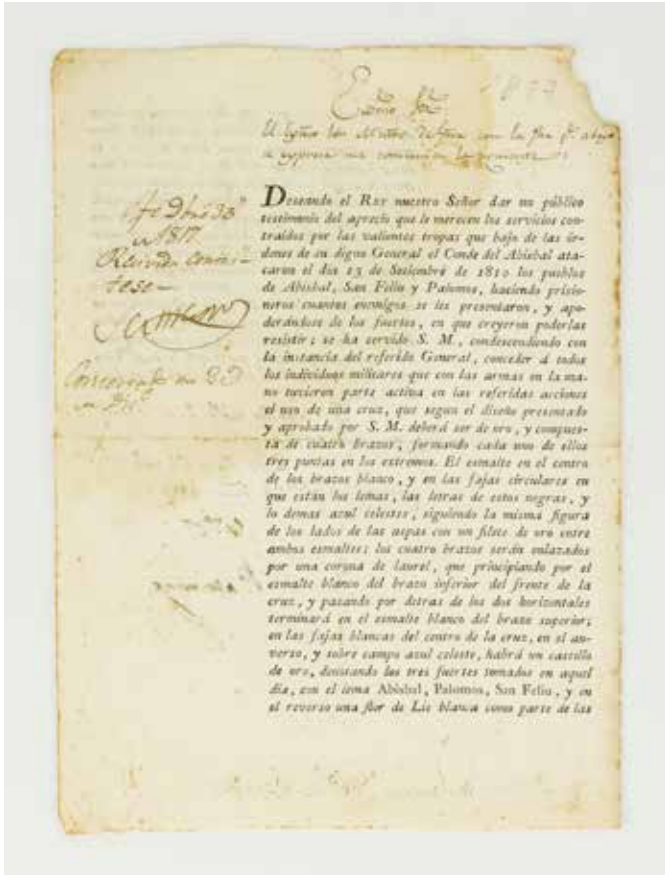 El
con la
Deseando el Rey nuestro Señor dar un público
testimonio del aprecio que le merecen los servicios con-
traidos por las valientes tropas que bajo de las ór-
denes de su digno General el Conde del Abisbal ata-
caron el dia 13 de Setiembre de 1810 los pueblos
de Abisbal, San Feliu y Palomos, haciendo prisio-
neros cuantos enemigos se les presentaron, y apo-
derándose de los fuertes, en que creyeron poderlas
resistir; se ha servido S. M., condescendiendo con
la instancia del referido General, conceder á todos
los individuos militares que con las armas en la ma-
no tuvieron parte activa en las referidas acciones
el uso de una cruz, que segun el diseño presentado
y aprobado por S. M. deberá ser de oro, y compues-
ta de cuatro brazos, formando cada uno de ellos
tres puntas en los extremos. El esmalte en el centro
de los brazos blanco, y en las fajas circulares en
que están los lemas, las letras de estos negras, y
lo demas azul celeste, siguiendo la misma figura
de los lados de las aspas con un filete de oro entre
ambos esmaltes: los cuatro brazos serán enlazados
por una corona de laurel, que principiando por el
esmalte blanco del brazo inferior del frente de la
cruz, y pasando por detras de los dos horizontales
terminará en el esmalte blanco del brazo superior;
en las fajas blancas del centro de la cruz, en el an-
verso, y sobre campo azul celeste, habrá un castillo
de oro, denotando los tres fuertes tomados en aquel
dia, con el lema Abisbal, Palomos, San Feliu, y en
el reverso una flor de Lis blanca como parte de las
1817